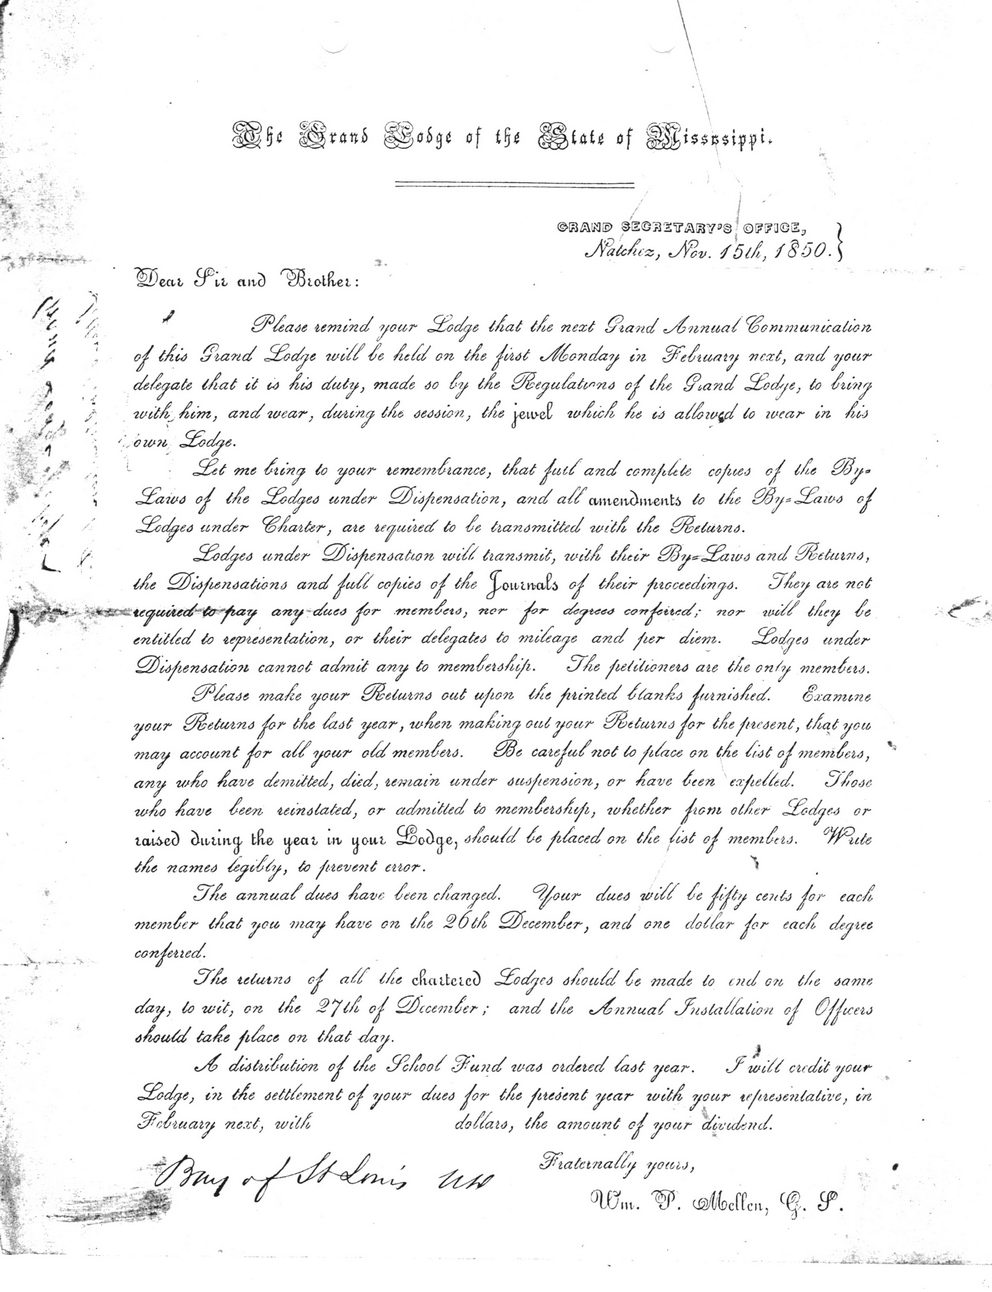 The Grand Lodge of the State of Mississippi.
GRAND SECRETARY'S OFFICE,
Natchez, Nov. 15th, 1850.
Dear Sir and Brother:
Please remind your Lodge that the next Grand Annual Communication
of this Grand Lodge will be held on the first Monday in February next, and your
delegate that it is his duty, made so by the Regulations of the Grand Lodge, to bring
with him, and wear, during the session, the jewel which he is allowed to wear in his
own Lodge.
Let me bring to your remembrance, that full and complete copies of the By=
Laws of the Lodges under Dispensation, and all amendments to the By=Laws of
Lodges under Charter, are required to be transmitted with the Returns.
Lodges under Dispensation will transmit, with their By=Laws and Returns,
the Dispensations and full copies of the Journals of their proceedings. They are not
required to pay any dues for members, nor for degrees conferred; nor will they be
entitled to representation, or their delegates to mileage and per diem. Lodges under
Dispensation cannot admit any to membership. The petitioners are the only members.
Please make your Returns out upon the printed blanks furnished. Examine
your Returns for the last year, when making out your Returns for the present, that you
may account for all your old members. Be careful not to place on the list of members,
any who have demitted, died, remain under suspension, or have been expelled. Those
who have been reinstated, or admitted to membership, whether from other Lodges or
raised during the year in your Lodge, should be placed on the list of members. Write
the names legibly, to prevent error.
The annual dues have been changed. Your dues will be fifty cents for each
member that you may have on the 26th December, and one dollar for each degree
conferred.
The returns of all the chartered Lodges should be made to end on the same
day, to wit, on the 27th of December; and the Annual Installation of Officers
should take place on that day.
A distribution of the School Fund was ordered last year. I will credit your
Lodge, in the settlement of your dues for the present year with your representative, in
February next, with dollars, the amount of your dividend.
Fraternally yours,
Wm. P. Mellen, G. S.
Bay of St Louis UD